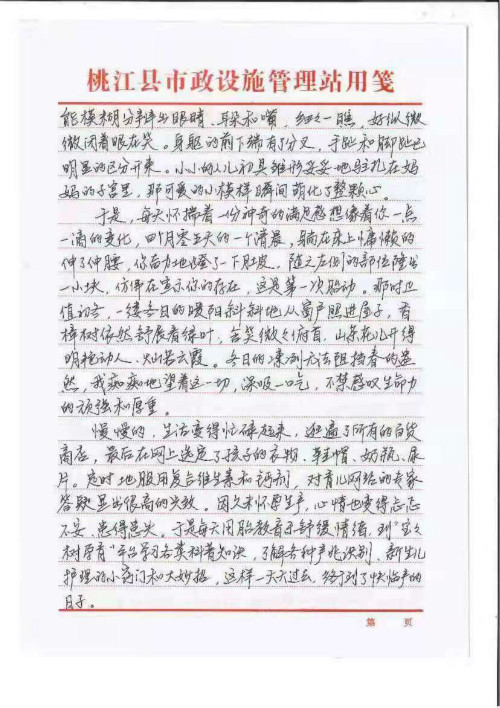 桃江县市政设施管理站用笺
能模糊分辨出眼睛、耳朵和嘴，细细一瞧，好似微
微闭着眼在笑。身躯的前下端有了分叉，手趾和脚趾已
明显的区分开来。小小的人儿初具雏形妥妥地驻扎在妈
妈的子宫里，那可爱的小模样瞬间萌化了整颗心。
于是，每天怀揣着一份神奇的满足感想像着你一点
一滴的变化，四个月零五天的一个清晨，躺在床上慵懒的
伸了伸腰，你奋力地蹬了一下肚皮，随之左侧的部位隆出
一小块，仿佛在宣示你的存在，这是第一次胎动。那时正
值初冬，一缕冬日的暖阳斜斜地从窗户照进屋子，香
樟树依然舒展着绿叶，含笑微微俯首，山茶花儿开得
明艳动人、灿若云霞。冬日的凛冽无法阻挡春的盎
然，我痴痴地望着这一切，深吸一口气，不禁感叹生命力
的顽强和厚重。
慢慢的，生活变得忙碌起来，逛遍了所有的百货
商店，最后在网上选定了孩子的衣物、鞋帽、奶瓶、尿
片。定时地服用复合维生素和钙剂，对育儿网站的专家
答疑显出很高的兴致。因久未怀厚生产，心情也变得忐忑
不安、患得患失。于是每天用胎教音乐舒缓情绪，到"宝宝
树孕育"平台学习各类科普知识，了解各种声兆识别、新生儿
护理的小窍门和大妙招，这样一天天过去，终于到了快临产的
日子。
第 页